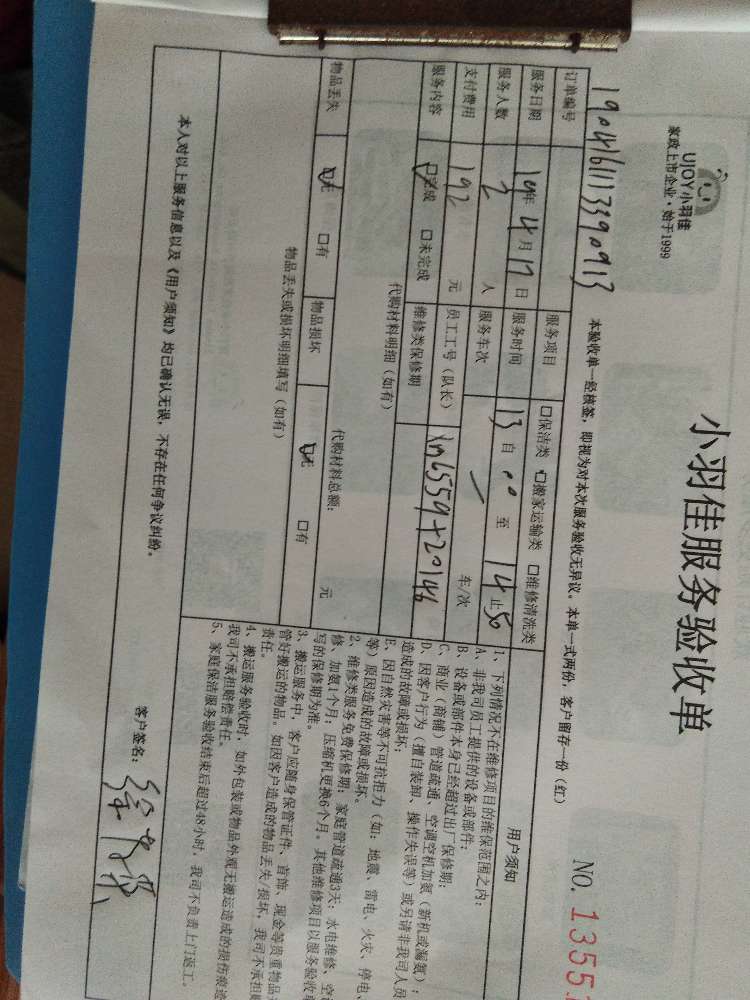 UJOY小羽佳
家政上市企业·始于1999
小羽佳服务验收单
NO.1355
本验收单一经核签，即视为对本次服务验收无异议。本单一式两份，客户留存一份（红）
订单编号 1904161113390913
服务项目 □保洁类 □搬家运输类 □维修清洗类
服务日期 19年4月17日 服务时间 13自00至14止50
服务人数 2人 服务车次 / 车/次
支付费用 192元 员工工号（队长）
服务内容 ☑完成 □未完成 维修类保修期
代购材料明细（如有）
代购材料总额： 元
物品丢失 ☑无 □有 物品损坏 ☑无 □有
物品丢失或损坏明细填写（如有）
用户须知
1、下列情况不在维修项目的维保范围之内：
A、非我司员工提供的设备或部件；
B、设备或部件本身已经超过出厂保修期；
C、商业（商铺）管道疏通、空调空机加氨（新机或漏氨）；
D、因客户行为（擅自装卸、操作失误等）或另请非我司人员
造成的故障或损坏；
E、因自然灾害等不可抗拒力（如：地震、雷电、火灾、停电、
等）原因造成的故障或损坏。
2、维修类服务免费保修期：家庭管道疏通3天；水电维修、空
修、加氨1个月；压缩机更换6个月。其他维修项目以服务验收单
写的保修期为准。
3、搬运服务中，客户应随身保管证件、首饰、现金等贵重物品
管好搬运的物品。如因客户造成的物品丢失/损坏，我司不承担
责任。
4、搬运服务验收时，如外包装或物品外观无搬运造成的损伤痕迹
我司不承担赔偿责任。
5、家庭保洁服务验收结束后超过48小时，我司不负责上门返工。
本人对以上服务信息以及《用户须知》均已确认无误，不存在任何争议纠纷。
客户签名：